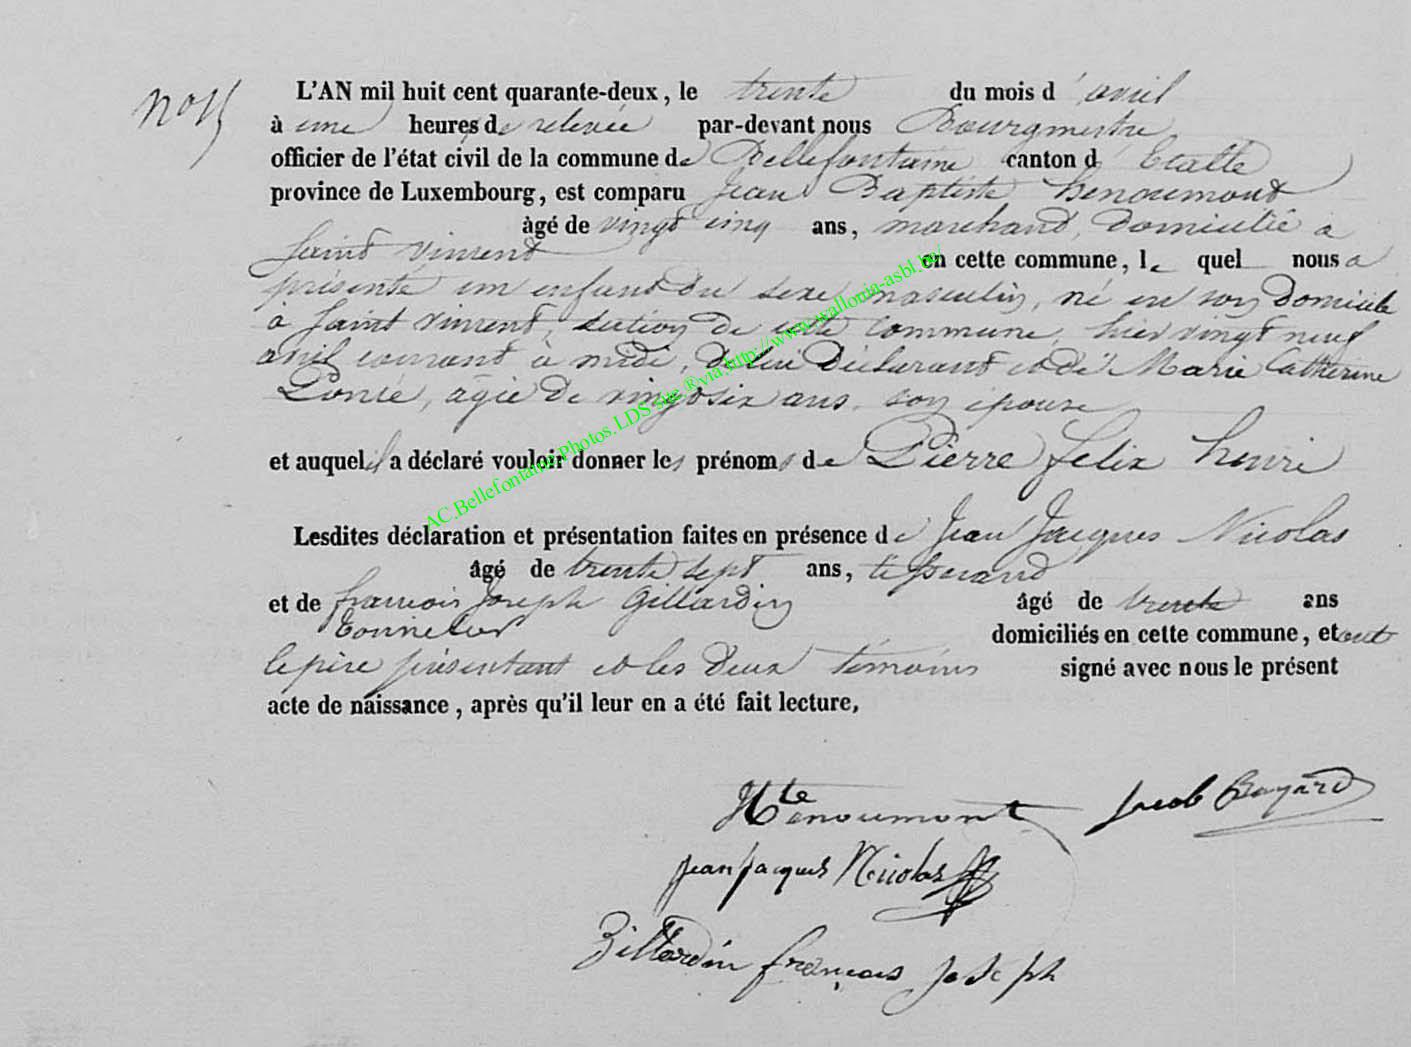 No 15
L'AN mil huit cent quarante-deux, le trente du mois d'avril
à une heures de relevée par-devant nous Bourgmestre
officier de l'état civil de la commune de Bellefontaine canton d'Etalle
province de Luxembourg, est comparu Jean Baptiste henoumont
âgé de vingt cinq ans, marchand, domicilié à
Saint vincent en cette commune, le quel nous a
présenté un enfant du sexe masculin, né en son domicile
à Saint vincent, section de cette commune, hier vingt neuf
avril courant à midi, de lui déclarant et de Marie Catherine
Poncé, agée de vingt six ans, son épouse
et auquel il a déclaré vouloir donner les prénoms de Pierre felix henri
Lesdites déclaration et présentation faites en présence de Jean Jacques Nicolas
âgé de trente sept ans, tisserand
et de francois Joseph Gillardin âgé de trente ans
tonnelier domiciliés en cette commune, et ont
le père présentant et les deux témoins signé avec nous le présent
acte de naissance, après qu'il leur en a été fait lecture,
henoumont Jacob Bayard
jean jacques Nicolas
Gillardin françois joseph
AC.Bellefontaine.Photos.LDS site.®via.http://www.wallonia-asbl.be/